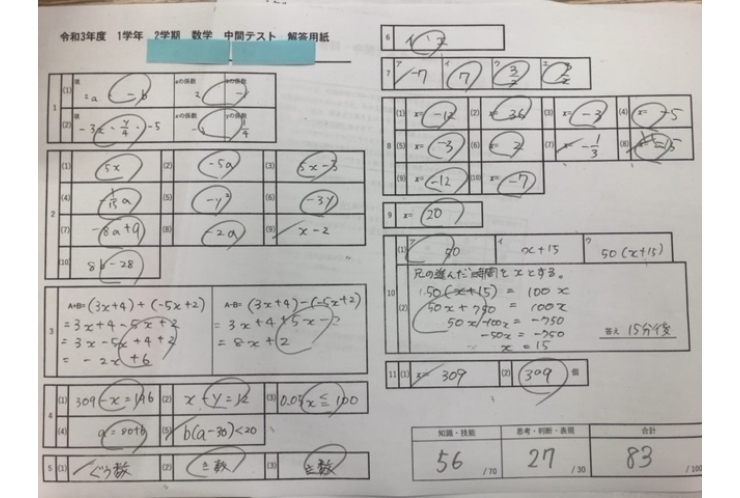 令和3年度 1学年 2学期 数学 中間テスト 解答用紙
1
(1) 項 2a - b xの係数 2 yの係数 -1
(2) 項 -3x yの係数
2
(1) 5x (2) -5a (3) 5x-3
(4) (5) -y² (6) -3y
(7) -8a+9 (8) -2a (9) x-2
(10) 8b-28
3
A+B= (3x+4)+(-5x+2)
= 3x+4-5x+2
= 3x-5x+4+2
= -2x+6
A-B= (3x+4)-(-5x+2)
= 3x+4+5x-2
= 8x+2
4
(1) 309-x=146 (2) x-y=12 (3) 0.05x≦100
(4) a=80+b (5) b(a-30)<20
5 (1) ぐう数 (2) き数 (3) き数
6
7 ア -7 イ 7 ウ エ
8
(1) x= -12 (2) x= 36 (3) x= -3 (4) x= -5
(5) x= -3 (6) x= 2 (7) x= -1/3 (8) x= 5
(9) x= -12 (10) x= -7
9 x= 20
10
(1) ア 50 イ x+15 ウ 50(x+15)
(2) 兄の進んだ時間をxとする。
50(x+15) = 100x
50x+750 = 100x
50x-100x = -750
-50x = -750
x = 15
答え 15分後
11 (1) x= 309 (2) 309 個
知識・技能 思考・判断・表現 合計
56 /70 27 /30 83 /100